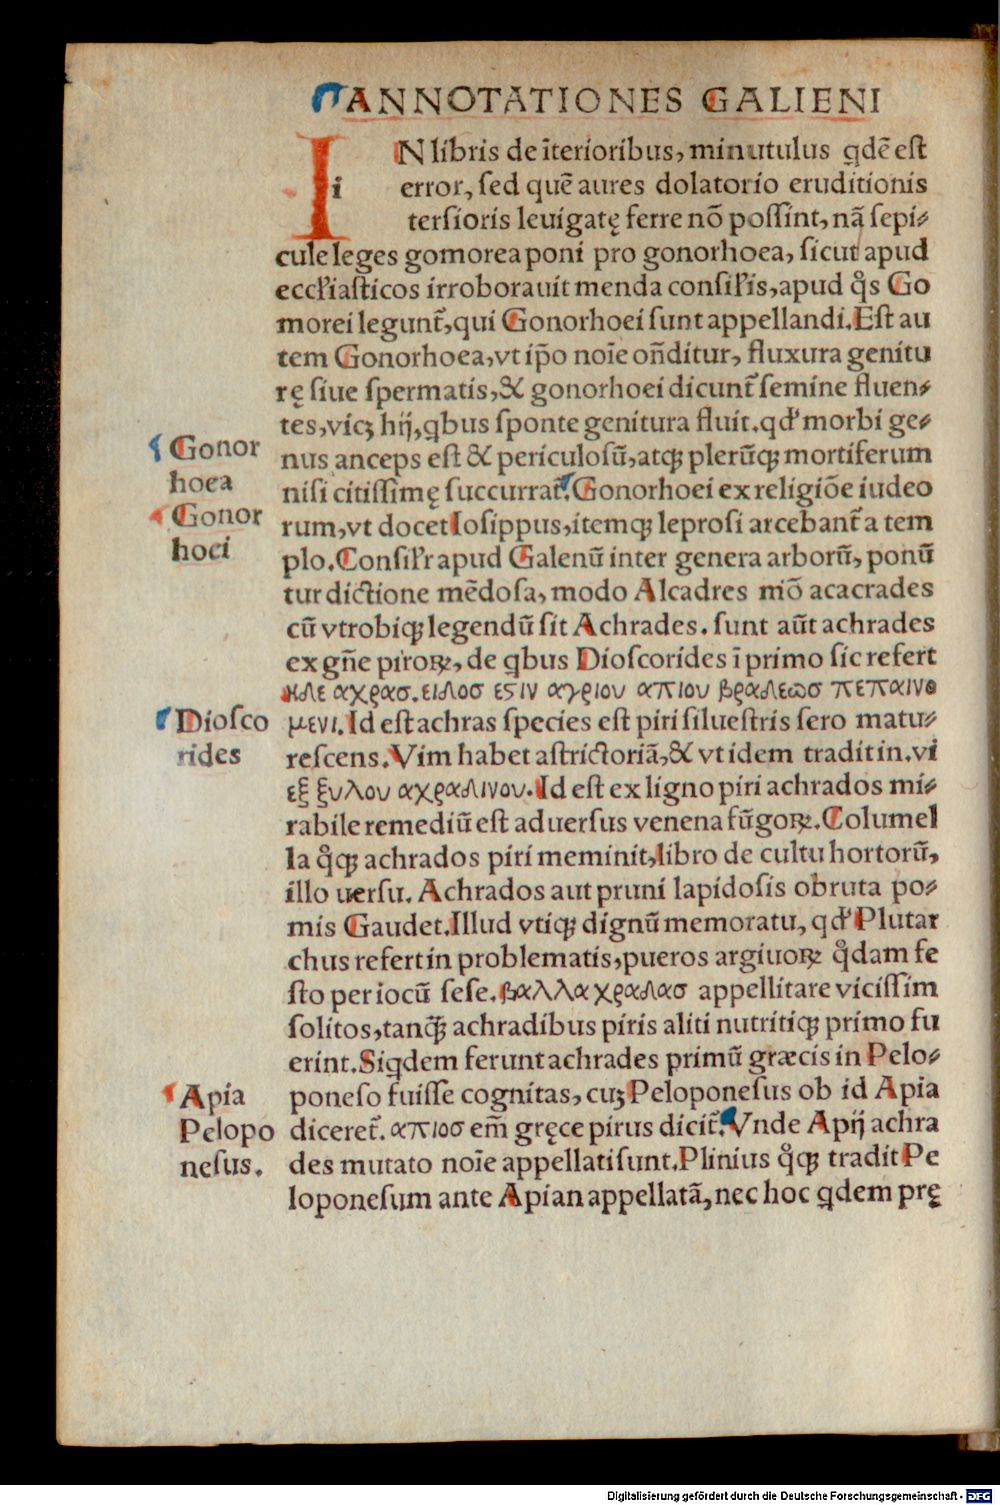 ANNOTATIONES GALIENI
IN libris de īterioribus, minutulus qdē est
i error, sed quē aures dolatorio eruditionis
tersioris leuigatę ferre nō possint, nā sepi⸗
cule leges gomorea poni pro gonorhoea, sicut apud
eccłiasticos irroborauit menda consiłis, apud q̊s Go
morei legunt᷑, qui Gonorhoei sunt appellandi. Est au
tem Gonorhoea, vt ip̄o noīe on̄ditur, fluxura genitu
rę siue spermatis, & gonorhoei dicunt᷑ semine fluen⸗
tes, vicꝫ hij, qbus sponte genitura fluit. qđ morbi ge⸗
nus anceps est & periculosū, atqꝫ plerūqꝫ mortiferum
nisi citissimę succurrat᷑. Gonorhoei ex religiōe iudeo
rum, vt docet Iosippus, itemqꝫ leprosi arcebant᷑ a tem
plo. Consiłr apud Galenū inter genera arborū, ponū
tur dictione mēdosa, modo Alcadres mō acacrades
cū vtrobiqꝫ legendū sit Achrades. sunt aūt achrades
ex gn̄e piroꝝ, de qbus Dioscorides ī primo sic refert
κδε αχρασ. ειδοσ εϛιν αγριου απιου βραδεωσ πεπαινο
μενι. Id est achras species est piri siluestris sero matu⸗
rescens. Vim habet astrictoriā, & vt idem tradit in. vi
εξ ξυλου αχραδινου. Id est ex ligno piri achrados mi⸗
rabile remediū est aduersus venena fūgoꝝ. Columel
la q̊qꝫ achrados piri meminit, libro de cultu hortorū,
illo uersu. Achrados aut pruni lapidosis obruta po⸗
mis Gaudet. Illud vtiqꝫ dignū memoratu, qđ Plutar
chus refert in problematis, pueros argiuoꝝ q̊dam fe
sto per iocū sese. βαλλαχραδασ appellitare vicissim
solitos, tanqꝫ̄ achradibus piris aliti nutritiqꝫ primo fu
erint. Siqdem ferunt achrades primū græcis in Pelo⸗
poneso fuisse cognitas, cuꝫ Peloponesus ob id Apia
diceret᷑. απιοσ em̄ gręce pirus dicit᷑. Vnde Apij achra
des mutato noīe appellati sunt. Plinius q̊qꝫ tradit Pe
loponesum ante Apian appellatā, nec hoc qdem prę
Gonor
hoea
Gonor
hoei
Diosco
rides
Apia
Pelopo
nesus.
Digitalisierung gefördert durch die Deutsche Forschungsgemeinschaft - DFG